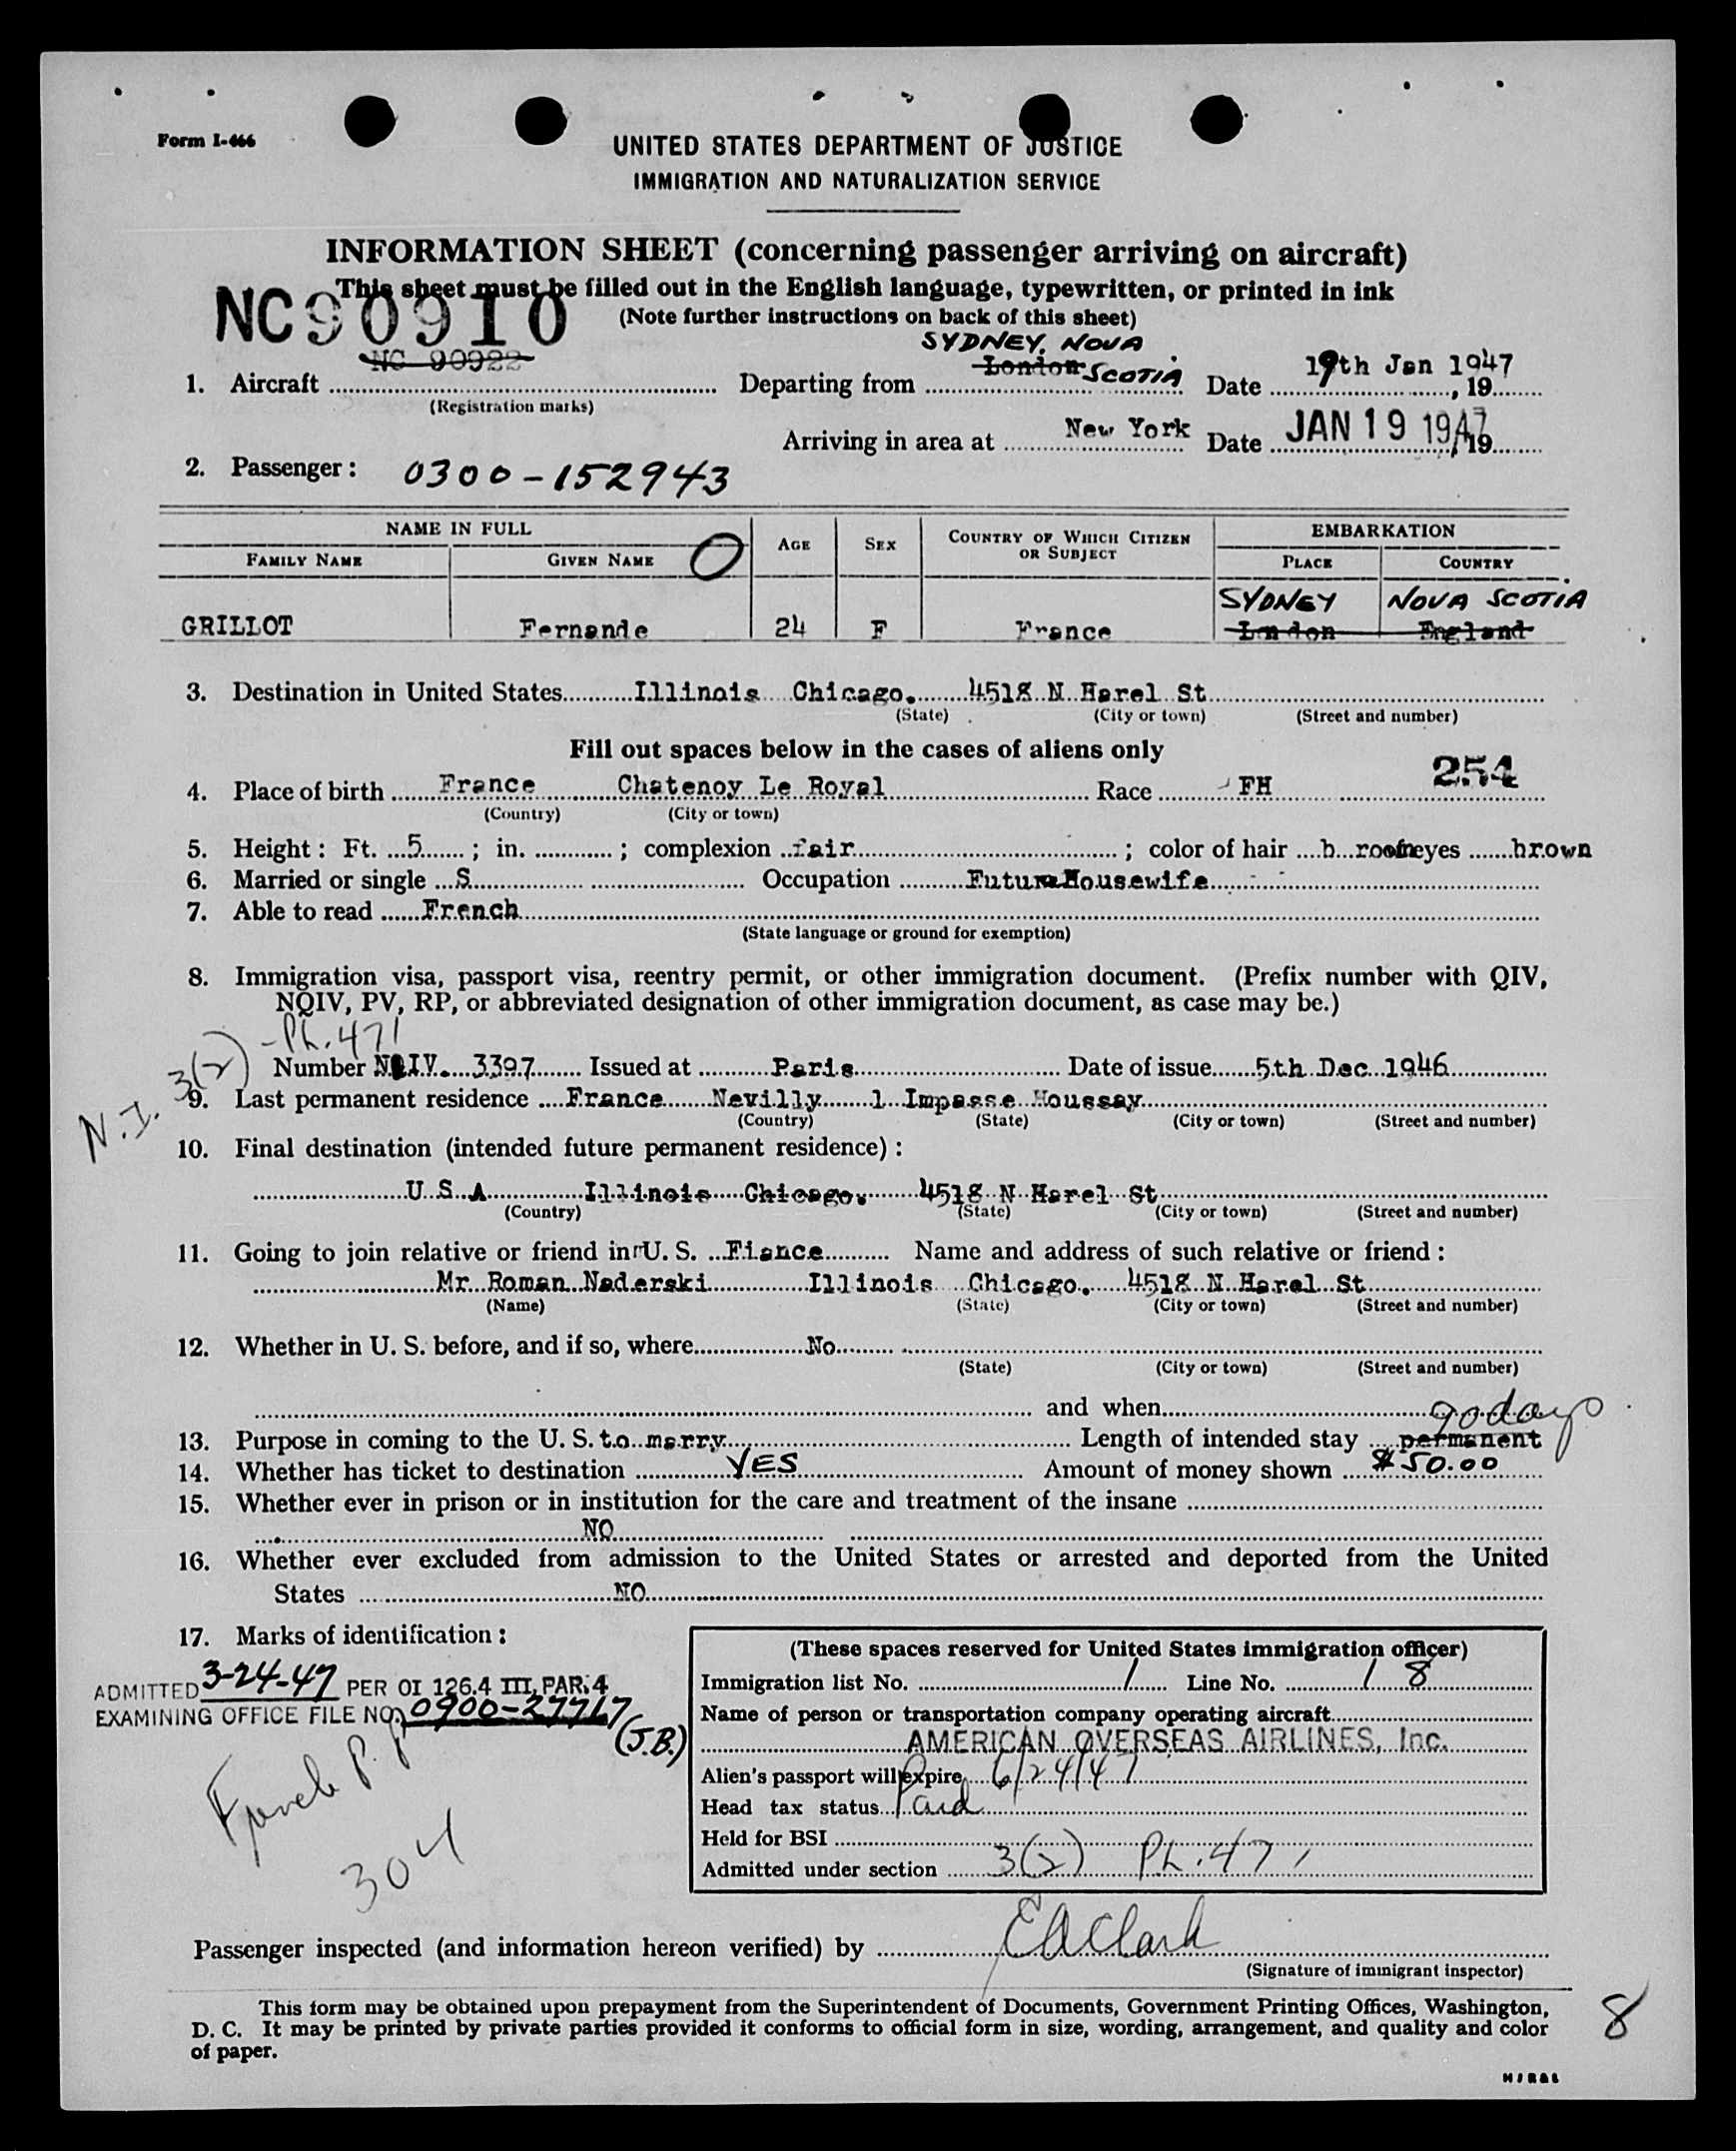 Form I-466
UNITED STATES DEPARTMENT OF JUSTICE
IMMIGRATION AND NATURALIZATION SERVICE
INFORMATION SHEET (concerning passenger arriving on aircraft)
This sheet must be filled out in the English language, typewritten, or printed in ink
NC90910
(Note further instructions on back of this sheet)
SYDNEY, NOVA
NC 90922 London SCOTIA 19th Jan 1947
1. Aircraft Departing from Date , 19
(Registration marks)
Arriving in area at New York Date JAN 19 1947 19
2. Passenger: 0300-152943
NAME IN FULL AGE SEX COUNTRY OF WHICH CITIZEN OR SUBJECT EMBARKATION
FAMILY NAME GIVEN NAME O PLACE COUNTRY
SYDNEY NOVA SCOTIA
GRILLOT Fernande 24 F France London England
3. Destination in United States Illinois Chicago. 4518 N Harel St
(State) (City or town) (Street and number)
Fill out spaces below in the cases of aliens only
254
4. Place of birth France Chatenoy Le Royal Race FH
(Country) (City or town)
5. Height: Ft. 5 ; in. ; complexion fair ; color of hair b eyes brown
6. Married or single S Occupation Future Housewife
7. Able to read French
(State language or ground for exemption)
8. Immigration visa, passport visa, reentry permit, or other immigration document. (Prefix number with QIV,
NQIV, PV, RP, or abbreviated designation of other immigration document, as case may be.)
N.I. 3(2) - Ph. 471
Number NQIV. 3397 Issued at Paris Date of issue 5th Dec 1946
9. Last permanent residence France Nevilly 1 Impasse Houssay
(Country) (State) (City or town) (Street and number)
10. Final destination (intended future permanent residence):
U.S.A Illinois Chicago. 4518 N Harel St
(Country) (State) (City or town) (Street and number)
11. Going to join relative or friend in U. S. Fiance Name and address of such relative or friend:
Mr. Roman Naderski Illinois Chicago. 4518 N Harel St
(Name) (State) (City or town) (Street and number)
12. Whether in U. S. before, and if so, where No
(State) (City or town) (Street and number)
and when
90 days
13. Purpose in coming to the U. S. to marry Length of intended stay permanent
14. Whether has ticket to destination YES Amount of money shown $50.00
15. Whether ever in prison or in institution for the care and treatment of the insane
NO
16. Whether ever excluded from admission to the United States or arrested and deported from the United
States NO
17. Marks of identification:
ADMITTED 3-24-47 PER OI 126.4 III, PAR. 4
EXAMINING OFFICE FILE NO. 0900-27717
(J.B.)
French P.P.
304
(These spaces reserved for United States immigration officer)
Immigration list No. 1 Line No. 1 8
Name of person or transportation company operating aircraft
AMERICAN OVERSEAS AIRLINES, Inc.
Alien's passport will expire 6/24/47
Head tax status Paid
Held for BSI
Admitted under section 3(2) Ph. 471
Passenger inspected (and information hereon verified) by EA Clark
(Signature of immigrant inspector)
This form may be obtained upon prepayment from the Superintendent of Documents, Government Printing Offices, Washington,
D. C. It may be printed by private parties provided it conforms to official form in size, wording, arrangement, and quality and color
of paper.
8